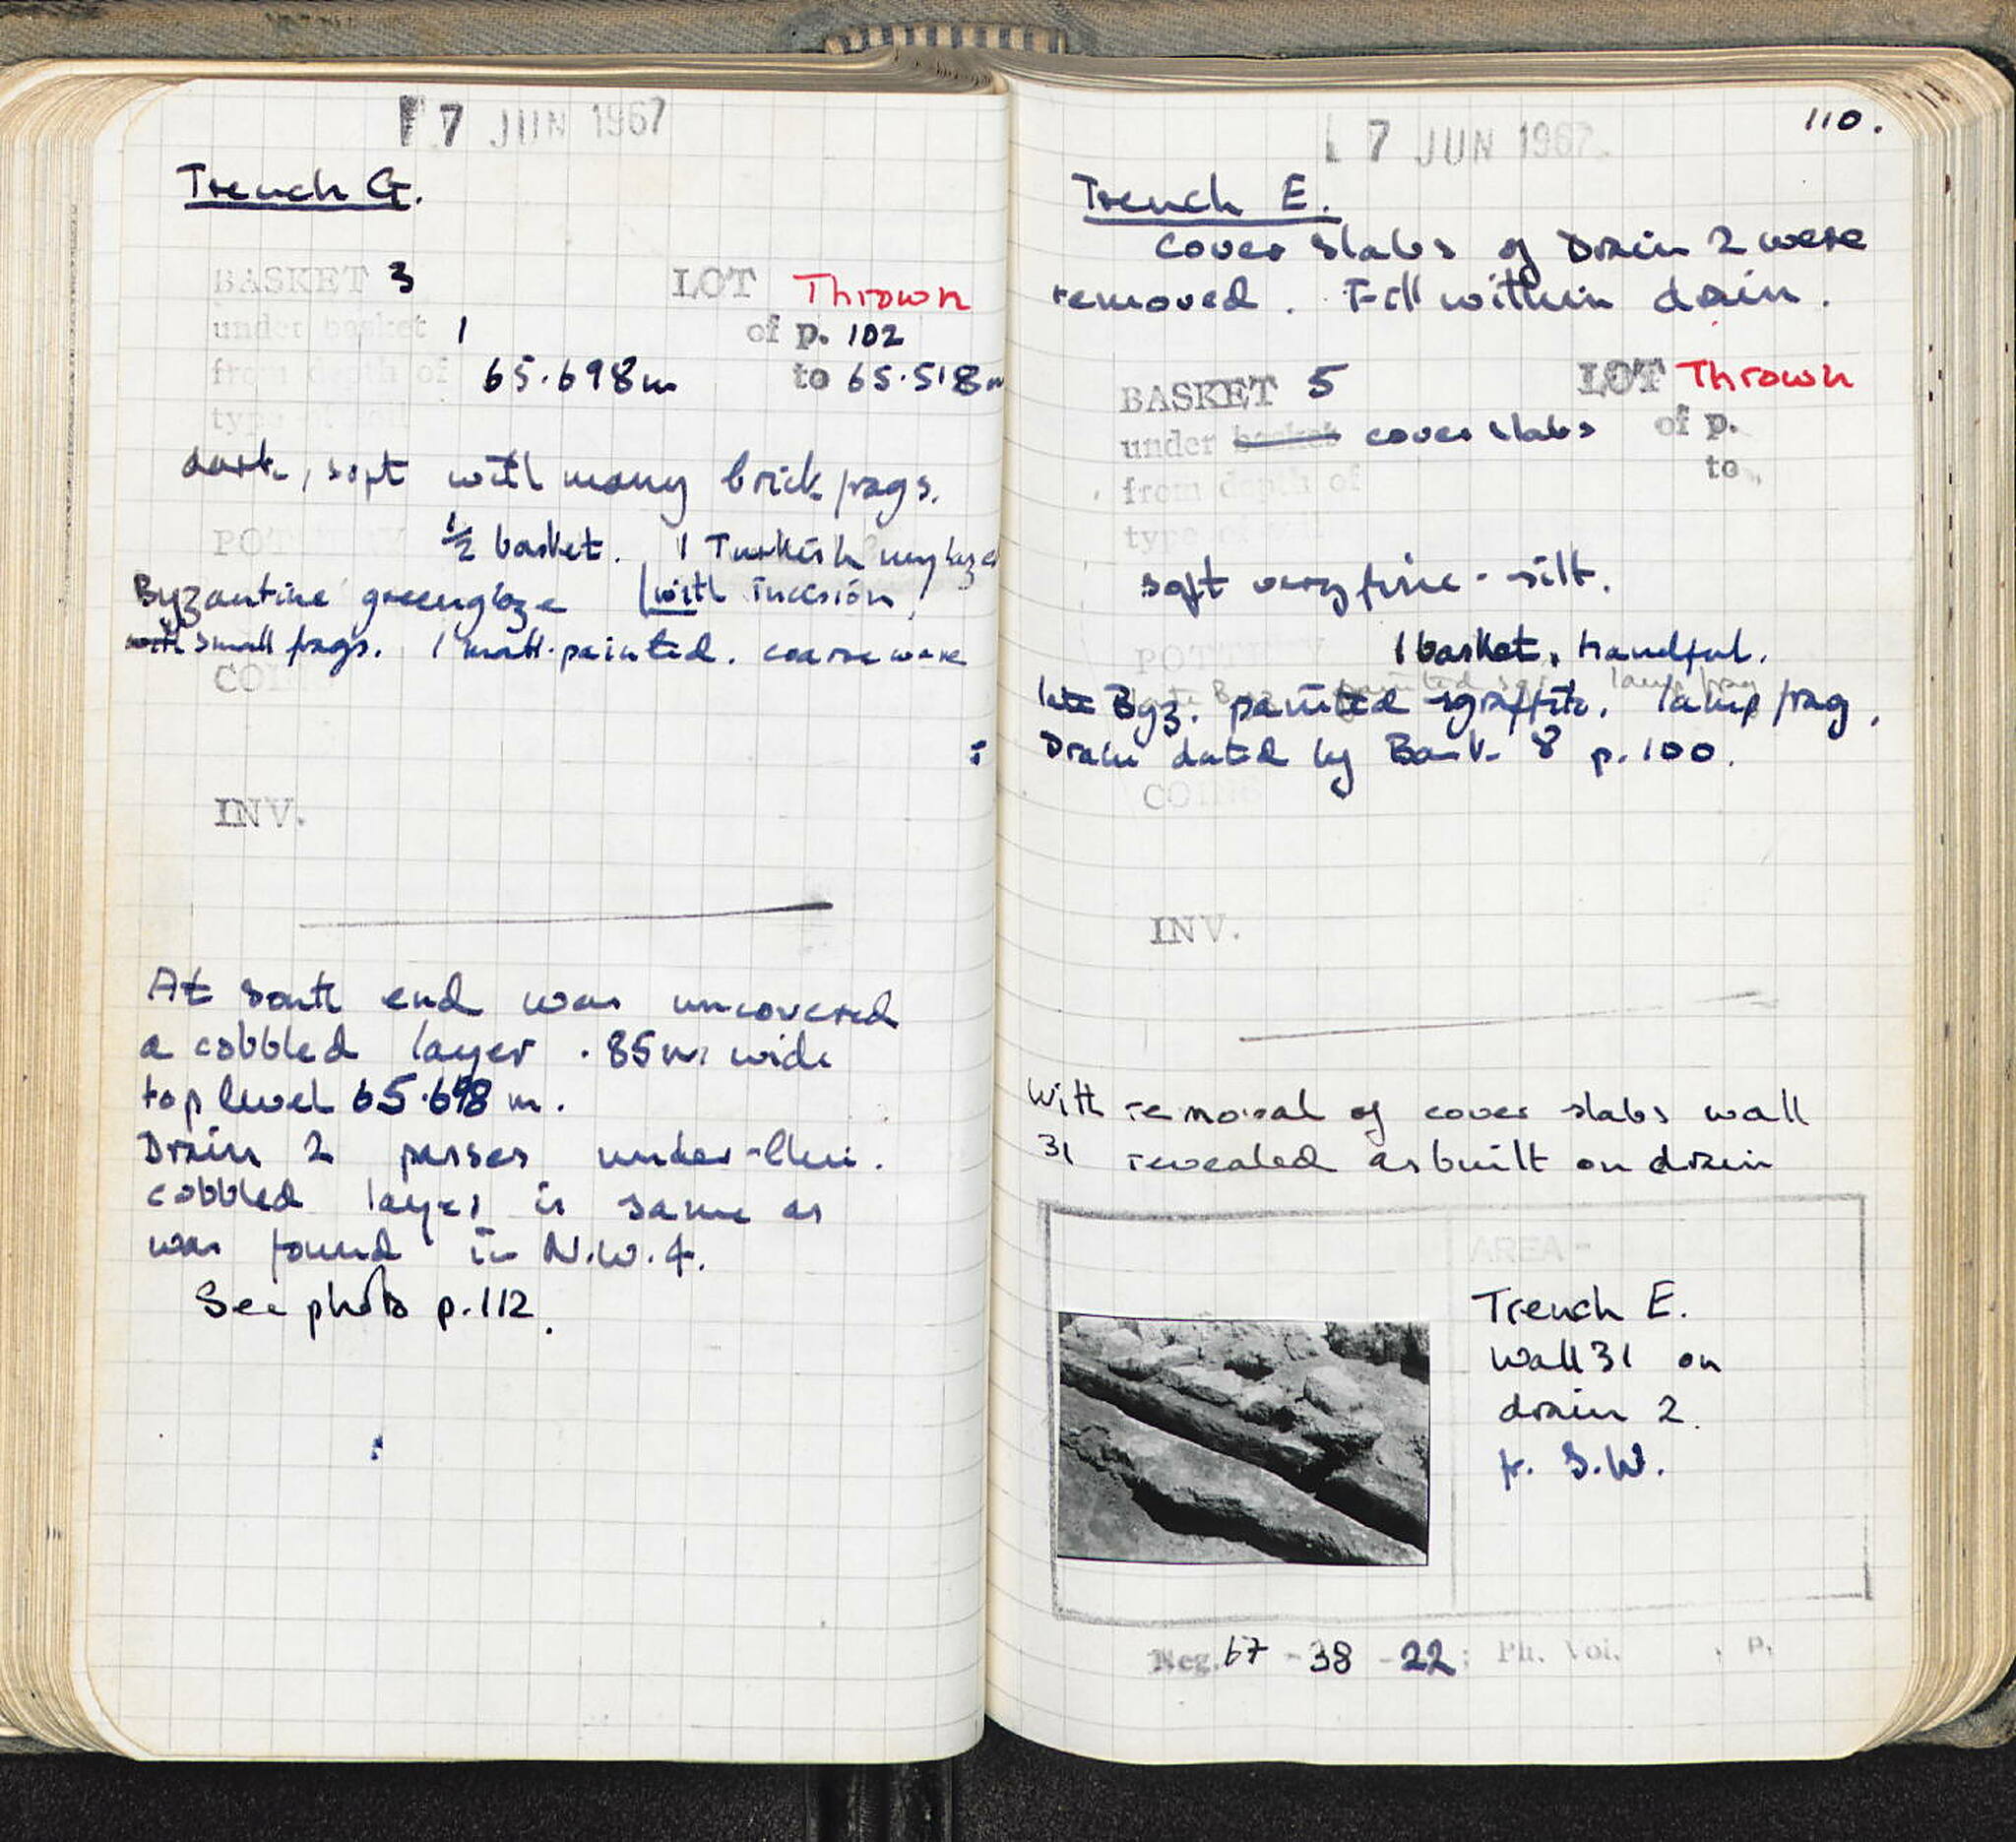 7 JUN 1967
Trench G.
BASKET 3 LOT Thrown
under basket 1 of p. 102
from depth of 65.698m to 65.518m
type of soil
dark, soft with many brick frags.
POTTERY 1/2 basket. 1 Turkish
Byzantine greenglaze with incision
small frags. 1 matt-painted. coarse ware
COINS
INV.
At south end was uncovered
a cobbled layer .85m wide
top level 65.698 m.
Drain 2 passes under
cobbled layer is same as
was found in N.W. 4.
See photo p.112.
110.
7 JUN 1967
Trench E.
Cover slabs of Drain 2 were
removed. Fill within drain.
BASKET 5 LOT Thrown
under basket cover slabs of p.
from depth of to
type of soil
soft very fine - silt.
POTTERY 1 basket, handful.
late Byz. painted sgraffito. lamp frag.
Drain dated by Bask. 8 p. 100.
COINS
INV.
With removal of cover slabs wall
31 revealed as built on drain
AREA -
Trench E.
Wall 31 on
drain 2.
fr. S.W.
Neg. 67 - 38 - 22 ; Ph. Vol. , p.